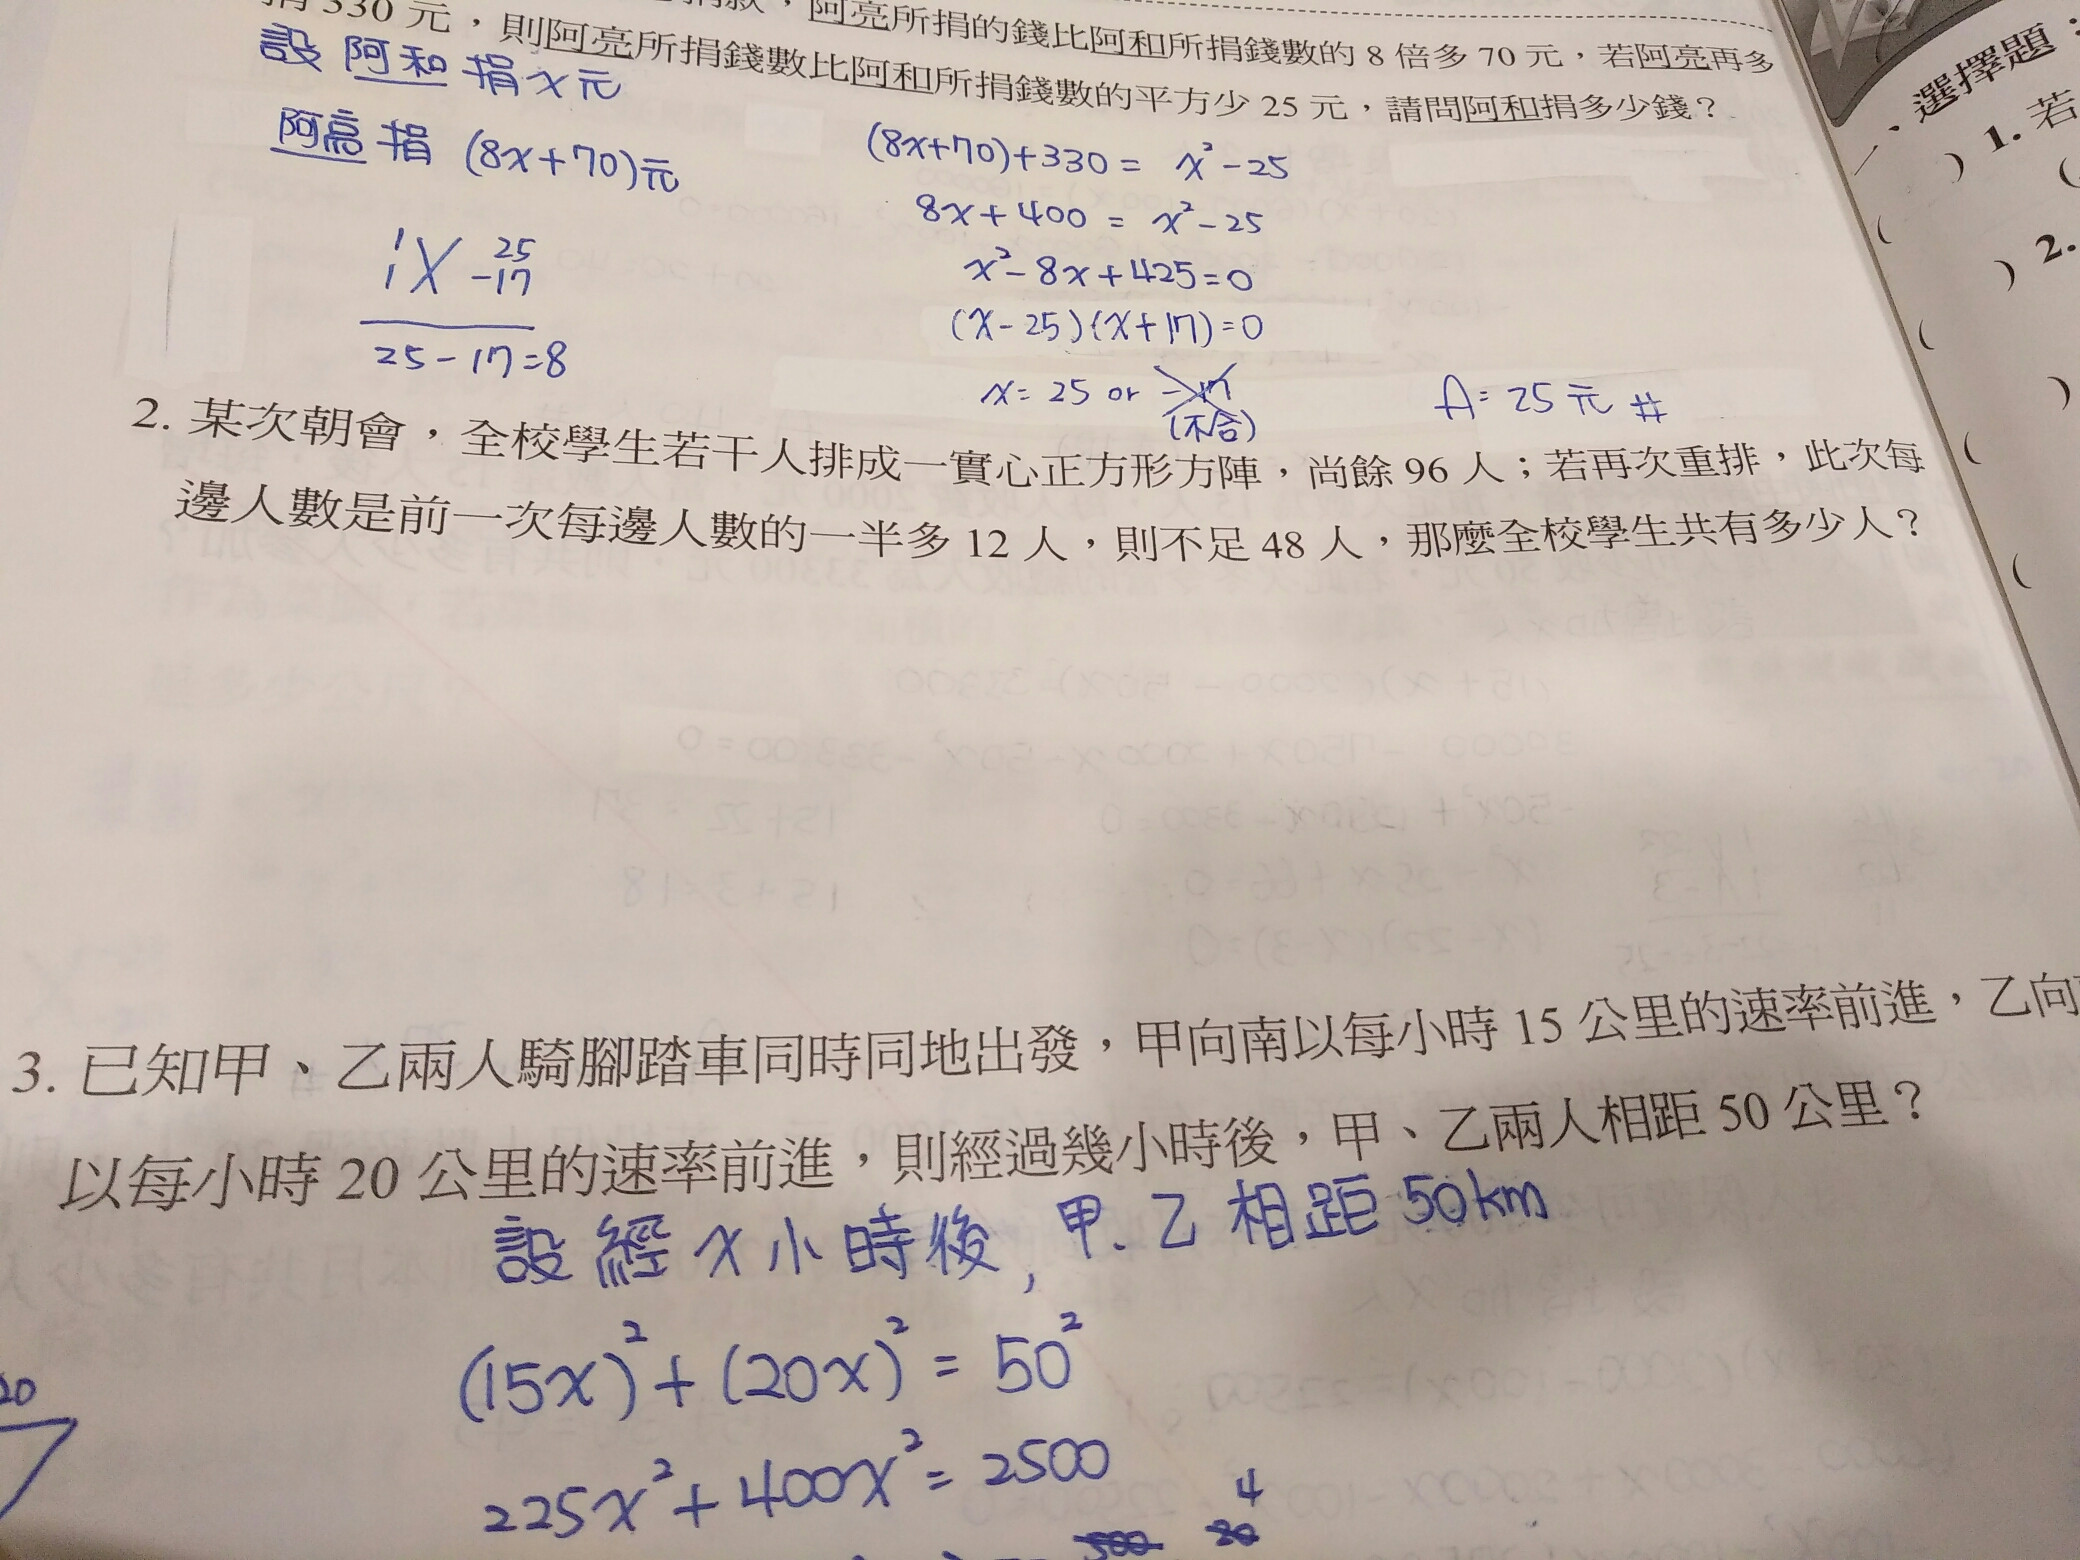 捐款，阿亮所捐的錢比阿和所捐錢數的 8 倍多 70 元，若阿亮再多
捐 330 元，則阿亮所捐錢數比阿和所捐錢數的平方少 25 元，請問阿和捐多少錢？
設 阿和 捐 x 元
阿亮 捐 (8x+70)元
(8x+70)+330 = x²-25
8x+400 = x²-25
x²-8x+425=0
(x-25)(x+17)=0
x=25 or -17
(不合)
A=25元#
1 25
1 -17
25-17=8
2. 某次朝會，全校學生若干人排成一實心正方形方陣，尚餘 96 人；若再次重排，此次每
邊人數是前一次每邊人數的一半多 12 人，則不足 48 人，那麼全校學生共有多少人？
3. 已知甲、乙兩人騎腳踏車同時同地出發，甲向南以每小時 15 公里的速率前進，乙向
以每小時 20 公里的速率前進，則經過幾小時後，甲、乙兩人相距 50 公里？
設 經 x 小時後, 甲、乙 相距 50km
(15x)²+(20x)² = 50²
225x²+400x² = 2500
4
20
一、選擇題：
( ) 1. 若
(
( ) 2.
( )
(